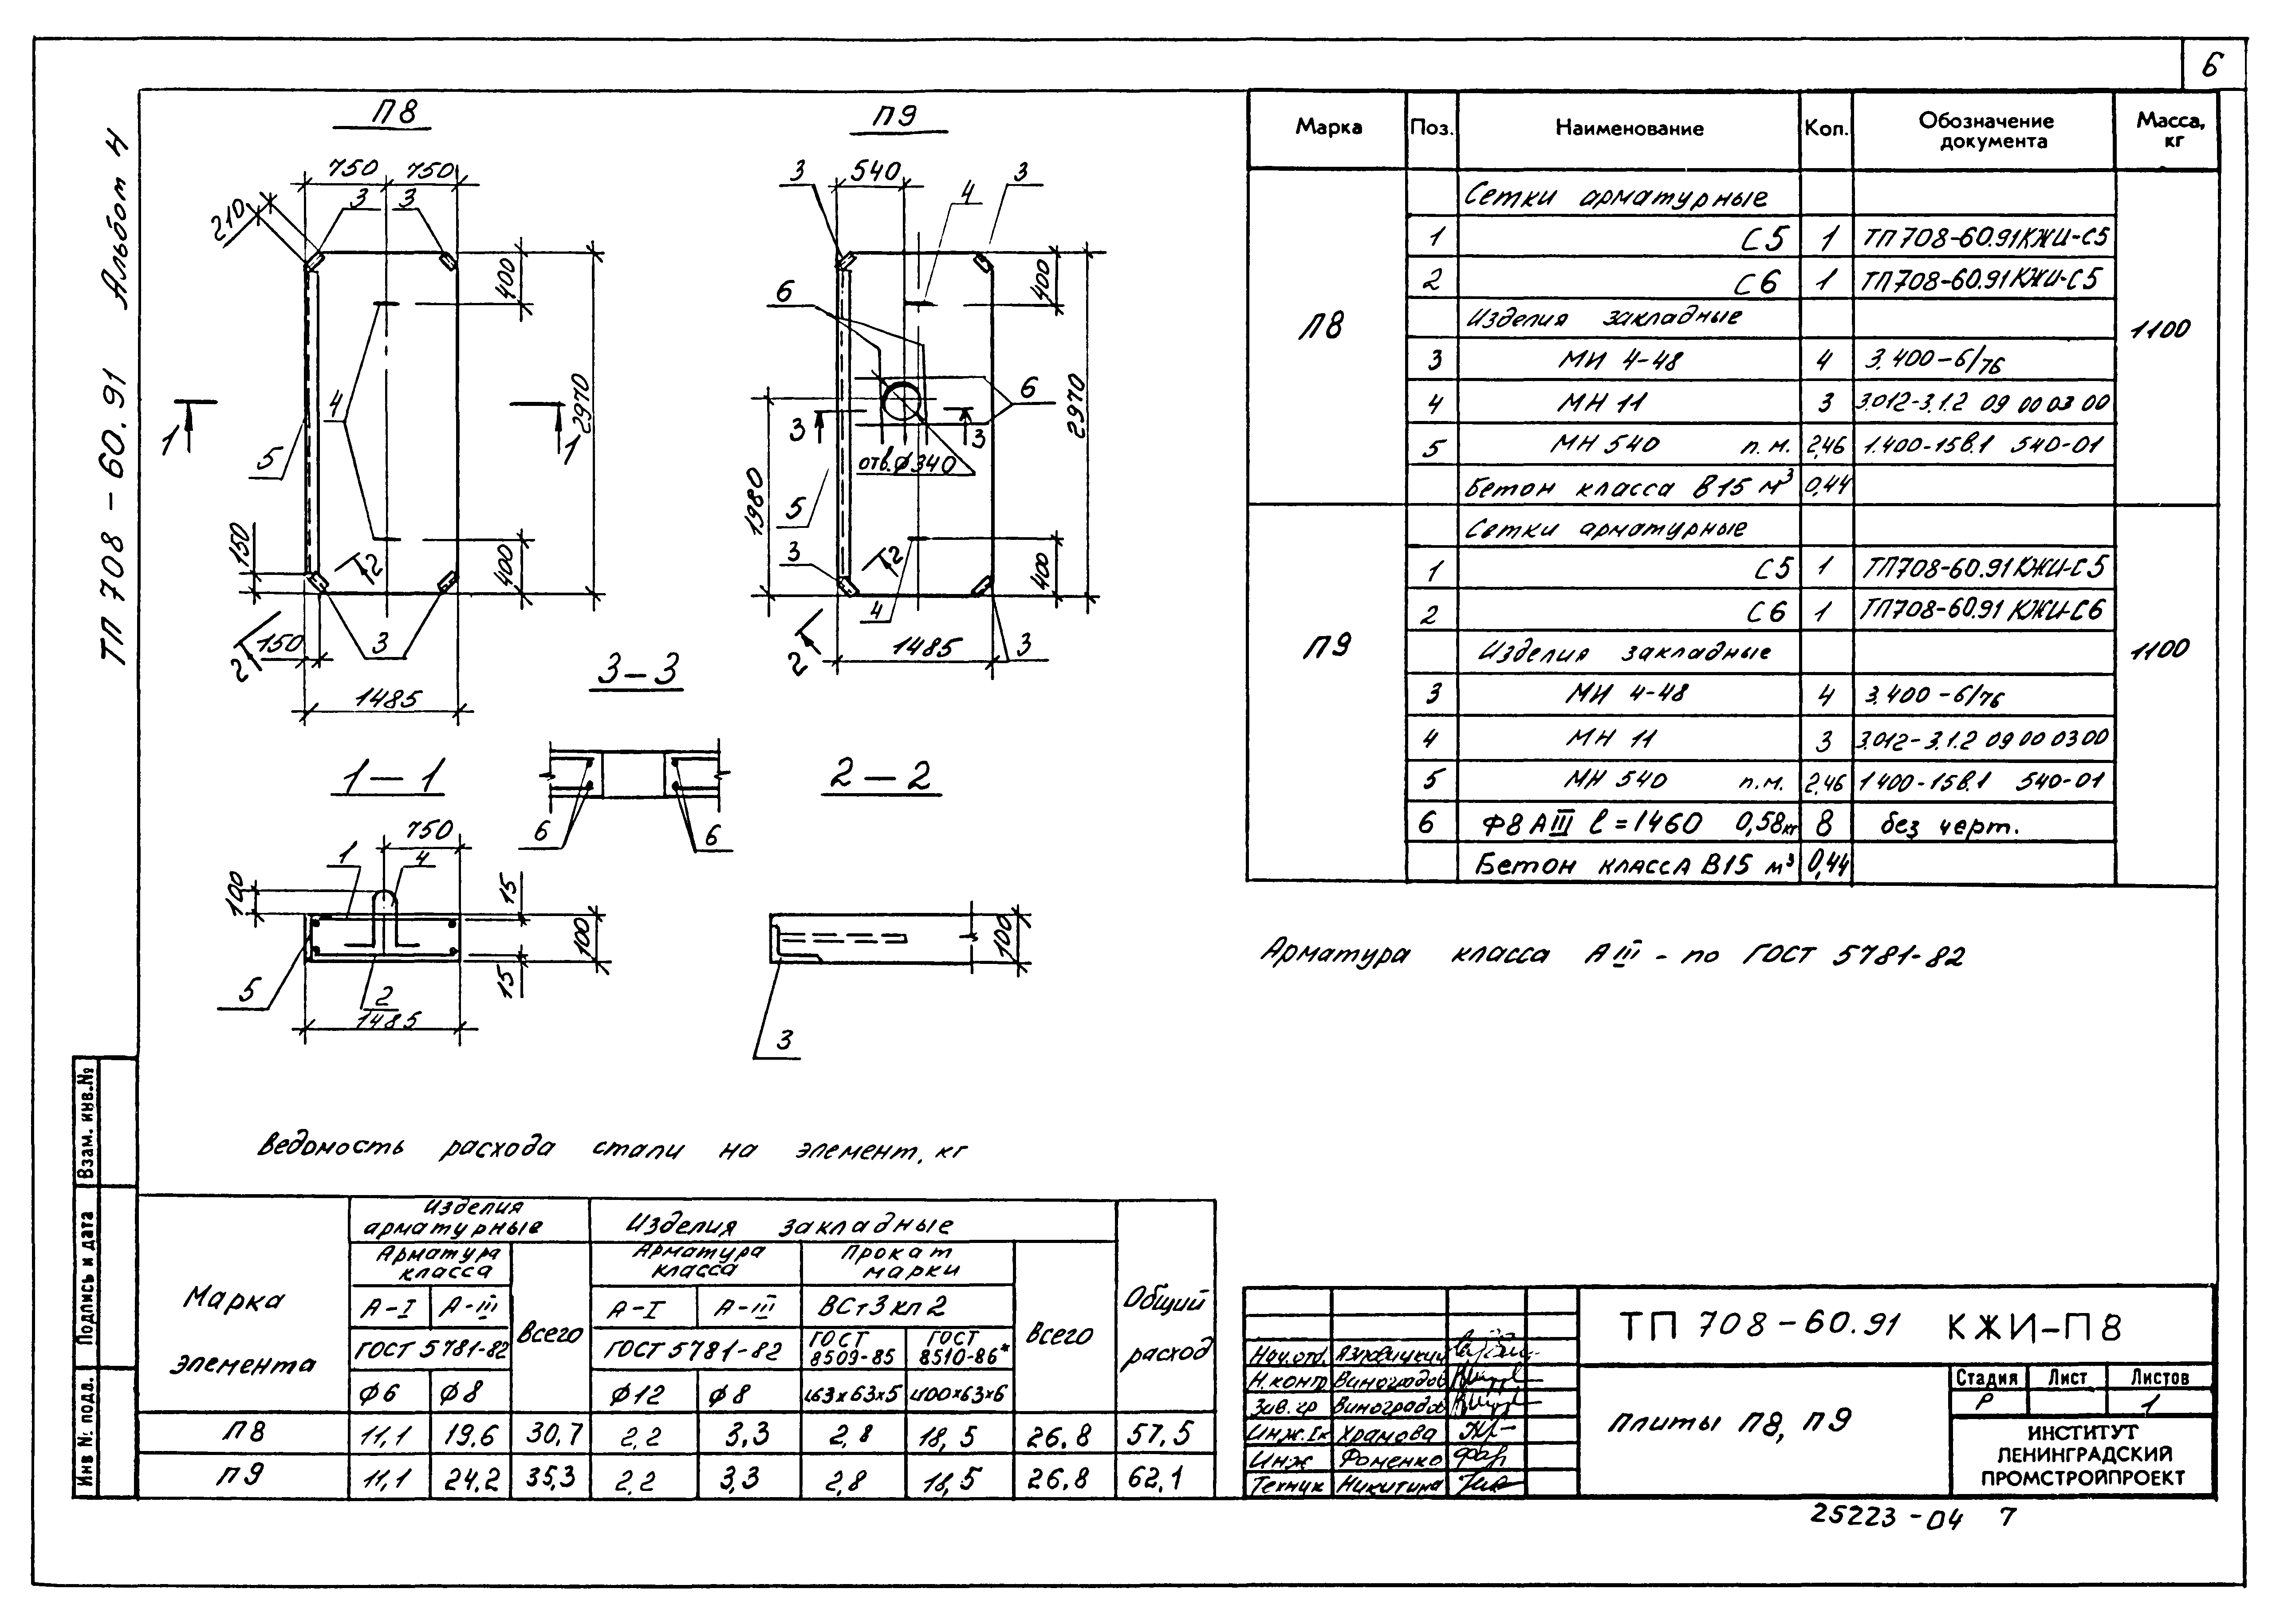 6
ТП 708-60.91 Альбом 4
П8
750 750
210
3 3
400
2970
4
1 1
5
150
2
400
2 150
3
1485
П9
3 540 3
4
400
6
6
2970
3 3
отв. ф340
1980
5
3
2
400
4
2 1485 3
3-3
6 6
1-1
750
1 4
100
15
100
15
5
2
1485
2-2
100
3
Марка Поз. Наименование Кол. Обозначение документа Масса, кг
П8 1100
Сетки арматурные
1 С5 1 ТП708-60.91КЖИ-С5
2 С6 1 ТП708-60.91КЖИ-С5
Изделия закладные
3 МИ 4-48 4 3.400-6/76
4 МН 11 3 3.012-3.1.2 09 00 03 00
5 МН 540 п.м. 2,46 1.400-15в.1 540-01
Бетон класса В15 м³ 0,44
П9 1100
Сетки арматурные
1 С5 1 ТП708-60.91КЖИ-С5
2 С6 1 ТП708-60.91 КЖИ-С6
Изделия закладные
3 МИ 4-48 4 3.400-6/76
4 МН 11 3 3.012-3.1.2 09 00 03 00
5 МН 540 п.м. 2,46 1400-15в.1 540-01
6 Ф8 АIII ℓ=1460 0,58кг 8 без черт.
Бетон класса В15 м³ 0,44
Арматура класса АIII - по ГОСТ 5781-82
Ведомость расхода стали на элемент, кг
Марка элемента
Изделия арматурные Изделия закладные Общий расход
Арматура класса Всего Арматура класса Прокат марки Всего
А-I А-III А-I А-III ВСт3кп2
ГОСТ 5781-82 ГОСТ 5781-82 ГОСТ 8509-85 ГОСТ 8510-86*
ф6 ф8 ф12 ф8 L63х63х5 L100х63х6
П8 11,1 19,6 30,7 2,2 3,3 2,8 18,5 26,8 57,5
П9 11,1 24,2 35,3 2,2 3,3 2,8 18,5 26,8 62,1
Взам. инв.№
Подпись и дата
Инв № подл.
Нач.отд.
Н.контр Виноградов
Зав.гр Виноградов
Инж.Iк Храмова
Инж Фоменко
Техник Никитина
ТП 708-60.91 КЖИ-П8
плиты П8, П9
Стадия Лист Листов
Р 1
ИНСТИТУТ
ЛЕНИНГРАДСКИЙ
ПРОМСТРОЙПРОЕКТ
25223-04 7